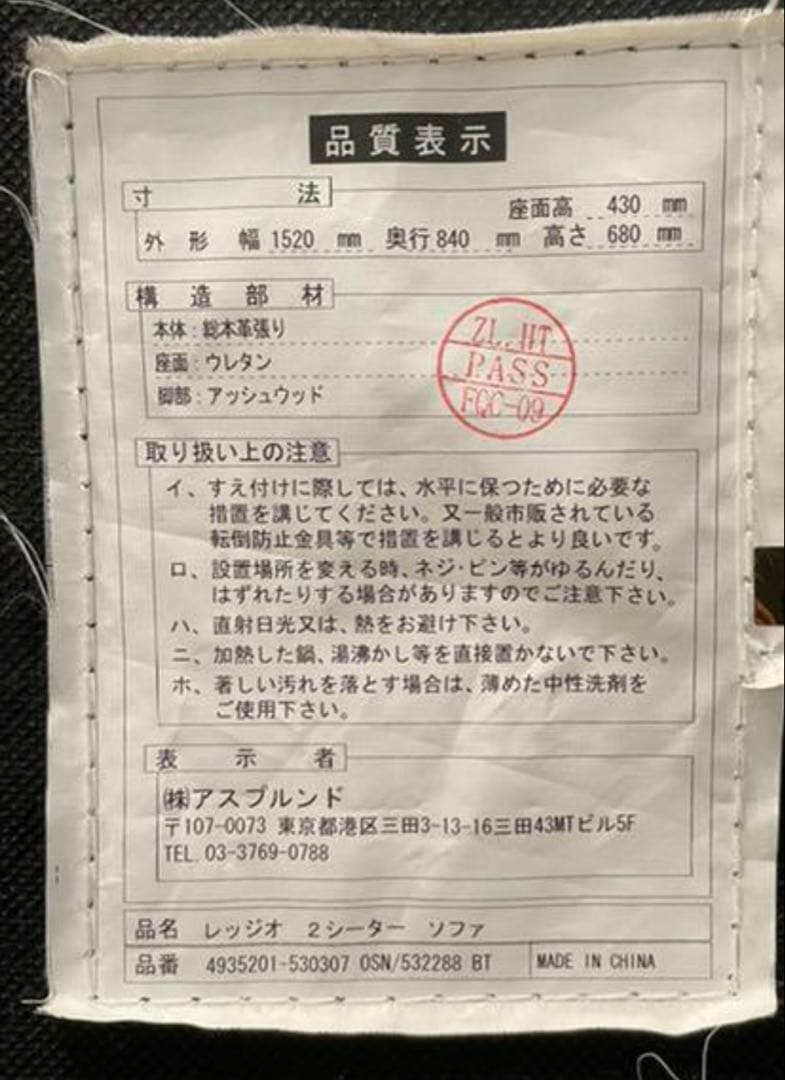 品質表示
寸法
座面高 430 mm
外形 幅 1520 mm 奥行 840 mm 高さ 680 mm
構造部材
本体：総本革張り
座面：ウレタン
脚部：アッシュウッド
ZL.HT
PASS
FQC-09
取り扱い上の注意
イ、すえ付けに際しては、水平に保つために必要な
措置を講じてください。又一般市販されている
転倒防止金具等で措置を講じるとより良いです。
ロ、設置場所を変える時、ネジ・ピン等がゆるんだり、
はずれたりする場合がありますのでご注意下さい。
ハ、直射日光又は、熱をお避け下さい。
ニ、加熱した鍋、湯沸かし等を直接置かないで下さい。
ホ、著しい汚れを落とす場合は、薄めた中性洗剤を
ご使用下さい。
表示者
㈱アスプルンド
〒107-0073 東京都港区三田3-13-16三田43MTビル5F
TEL. 03-3769-0788
品名 レッジオ 2シーター ソファ
品番 4935201-530307 OSN/532288 BT MADE IN CHINA